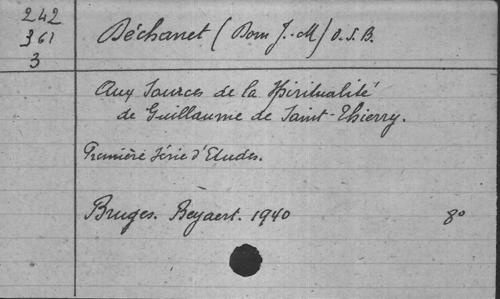 242
361
3
Déchanet (Dom J.-M) O.S.B.
Aux Sources de la Spiritualité
de Guillaume de Saint-Thierry.
Première Série d'Etudes.
Bruges. Beyaert. 1940 8º